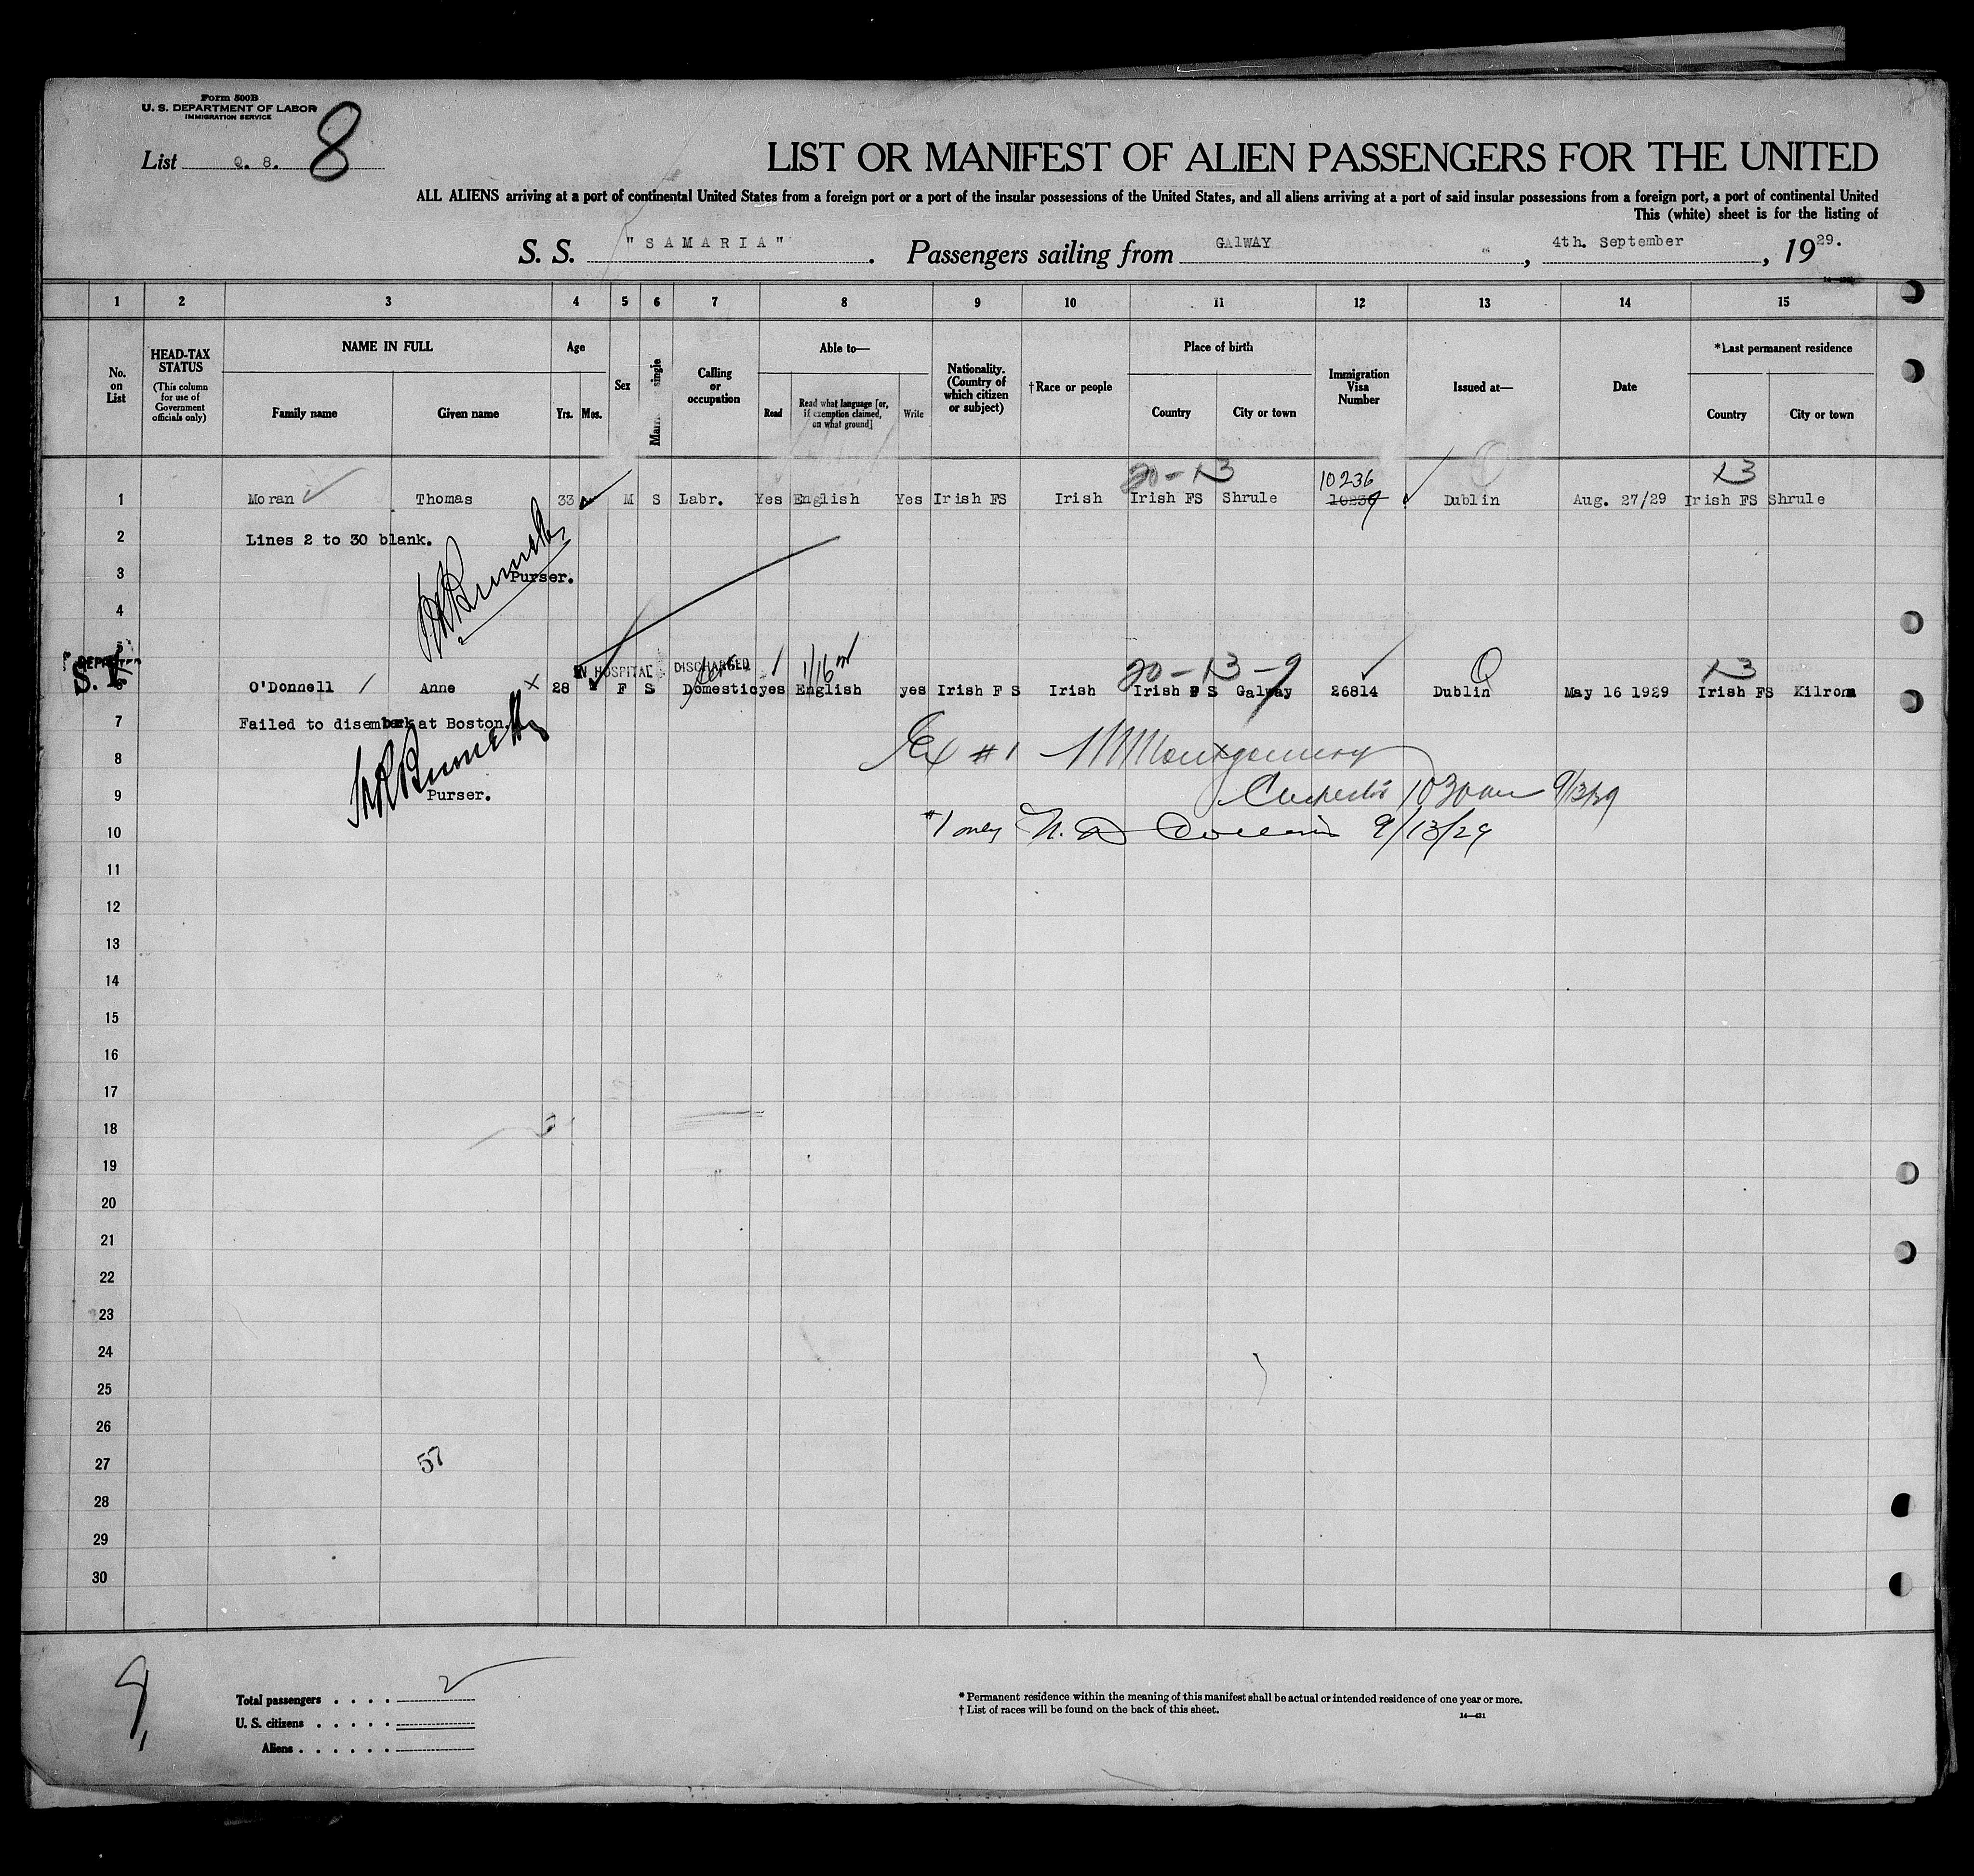 Form 500B
U. S. DEPARTMENT OF LABOR
IMMIGRATION SERVICE
List Q. 8. 8
LIST OR MANIFEST OF ALIEN PASSENGERS FOR THE UNITED
ALL ALIENS arriving at a port of continental United States from a foreign port or a port of the insular possessions of the United States, and all aliens arriving at a port of said insular possessions from a foreign port, a port of continental United
This (white) sheet is for the listing of
S. S. "SAMARIA" . Passengers sailing from GAlWAY , 4th. September , 1929.
1 2 3 4 5 6 7 8 9 10 11 12 13 14 15
No. on List
HEAD-TAX STATUS
(This column for use of Government officials only)
NAME IN FULL
Family name Given name
Age
Yrs. Mos.
Sex
single
Calling or occupation
Able to—
Read Read what language [or, if exemption claimed, on what ground] Write
Nationality. (Country of which citizen or subject)
†Race or people
Place of birth
Country City or town
Immigration Visa Number
Issued at—
Date
*Last permanent residence
Country City or town
20-13 10236 13
1 Moran Thomas 33 M S Labr. Yes English Yes Irish FS Irish Irish FS Shrule Dublin Aug. 27/29 Irish FS Shrule
2 Lines 2 to 30 blank.
3 Purser.
4
5
S. I. IN HOSPITAL DISCHARGED 20-13-9 13
6 O'Donnell / Anne X 28 F S Domestic yes English yes Irish F S Irish Irish F S Galway 26814 Dublin May 16 1929 Irish FS Kilrona
7 Failed to disembark at Boston.
8 Ex #1 Montgomery
9 Purser. Inspector 1030am 9/13/29
10 #1 only 9/13/29
11
12
13
14
15
16
17
18
19
20
21
22
23
24
25
26
27 57
28
29
30
Total passengers . . . . 2
U. S. citizens . . . . .
Aliens . . . . . .
* Permanent residence within the meaning of this manifest shall be actual or intended residence of one year or more.
† List of races will be found on the back of this sheet.
14—431